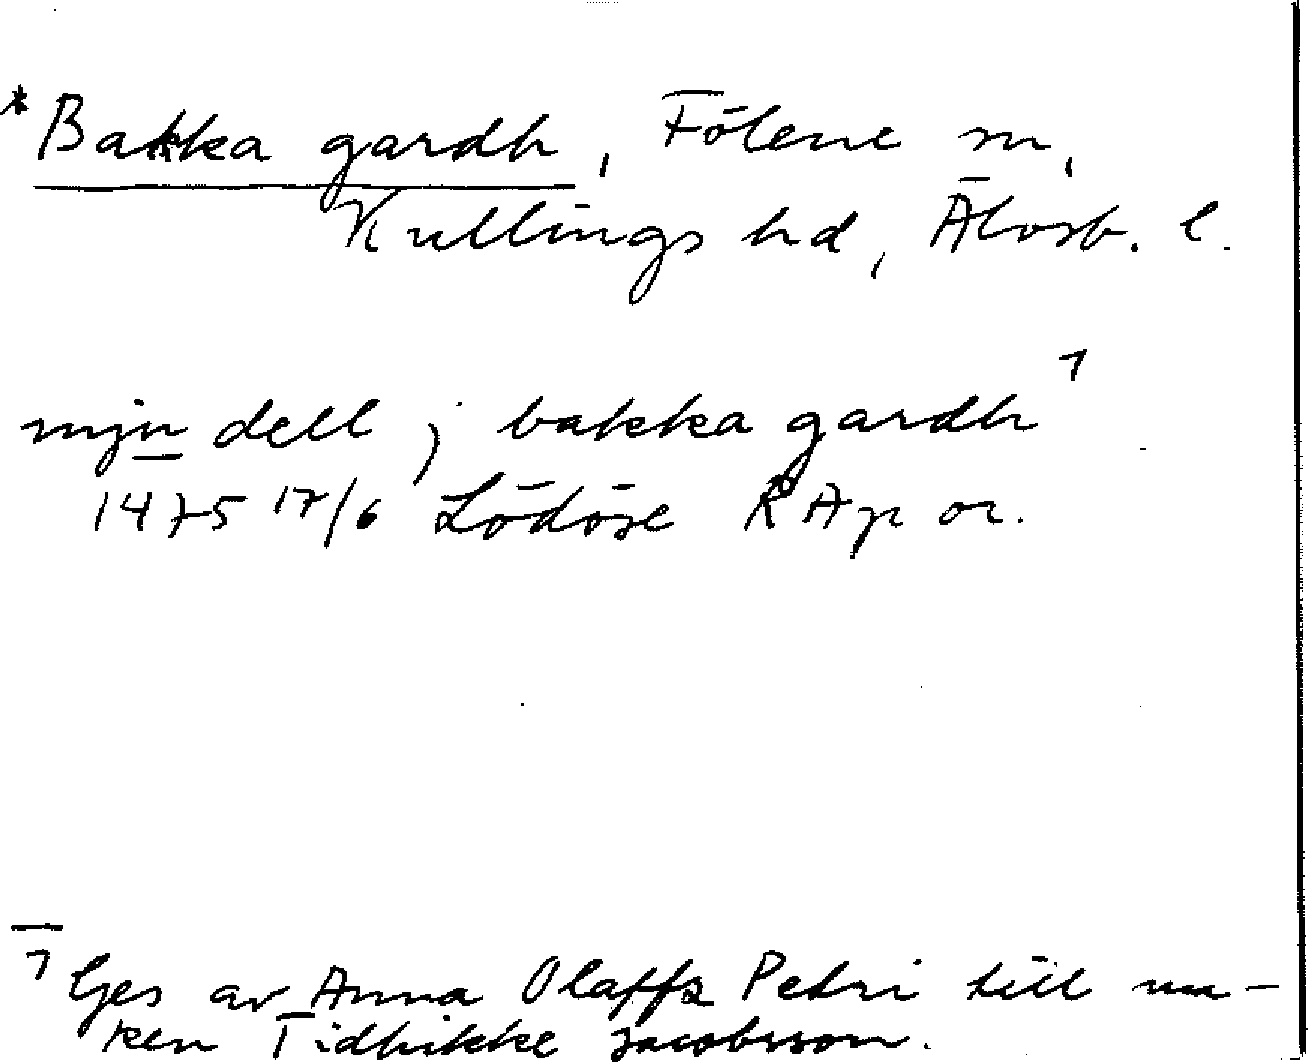 *Bakka gardh, Fölene sn,
Kullings hd, Älvsb. l.
mjn dell j bakka gardh 1
1475 17/6 Lödöse RAp or.
1 Ges av Anna Olaffs Petri till ma-
ken Tidhikke Jacobsson.